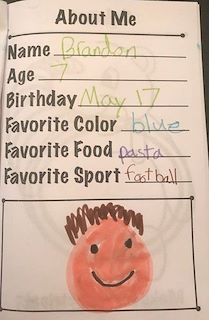 About Me
Name Brandon
Age 7
Birthday May 17
Favorite Color blue
Favorite Food pasta
Favorite Sport football